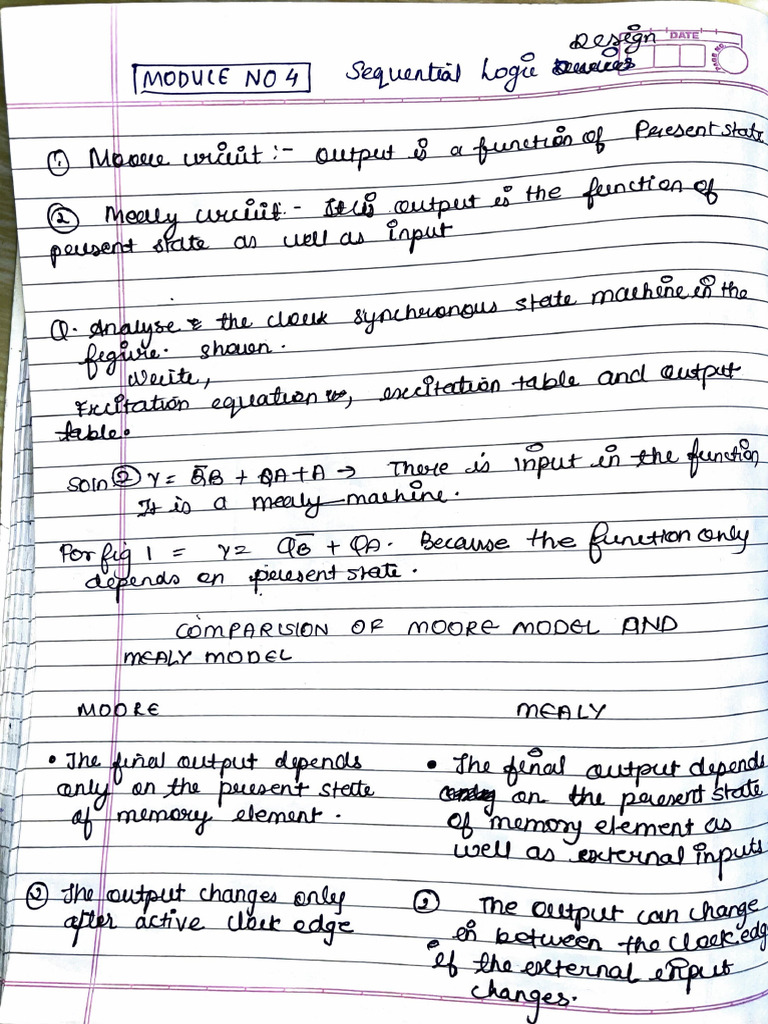 MODULE NO 4 Sequential Logic Design
DATE
PAGE NO
① Moore circuit :- output is a function of Present state
② Mealy circuit - output is the function of
present state as well as input
Q. Analyse the clock synchronous state machine in the
figure. shown.
Write,
Excitation equation, excitation table and output
table.
Soln ② Y = Q̅B + QA + A → There is input in the function,
It is a mealy machine.
For fig 1 = Y = QB̅ + QA. Because the function only
depends on present state.
COMPARISION OF MOORE MODEL AND
MEALY MODEL
MOORE MEALY
• The final output depends
only on the present state
of memory element.
• The final output depends
on the present state
of memory element as
well as external inputs
② The output changes only
after active clock edge
② The output can change
in between the clock edg
if the external input
changes.